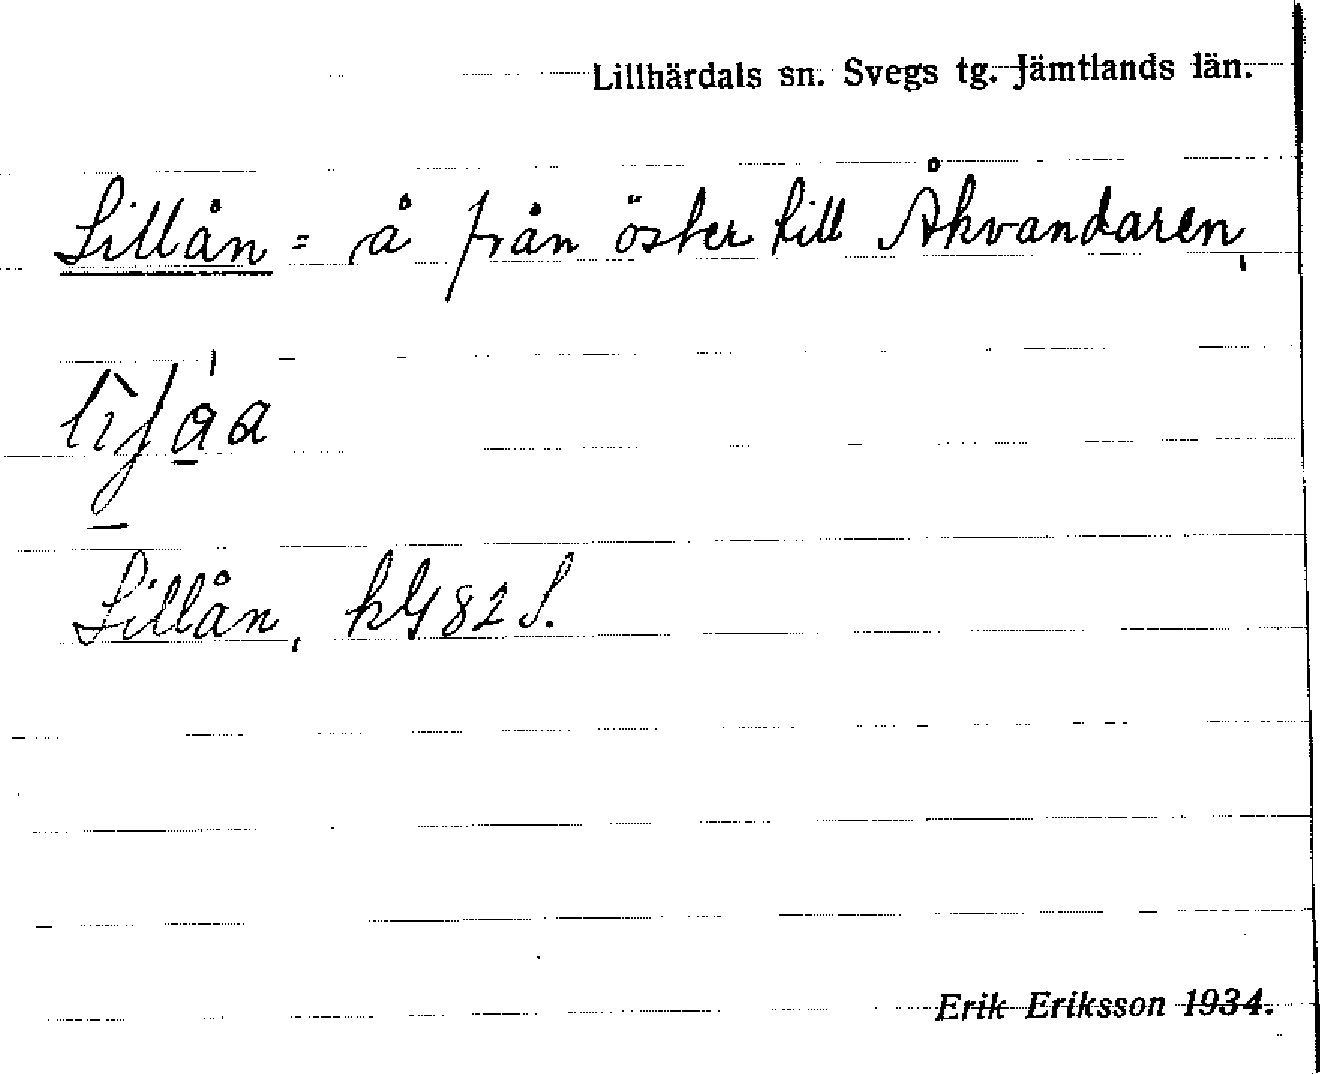 Lillhärdals sn. Svegs tg. Jämtlands län.
Lillån = å från öster till Åkvandaren,
Lillån, kG 82 S.
Erik Eriksson 1934.